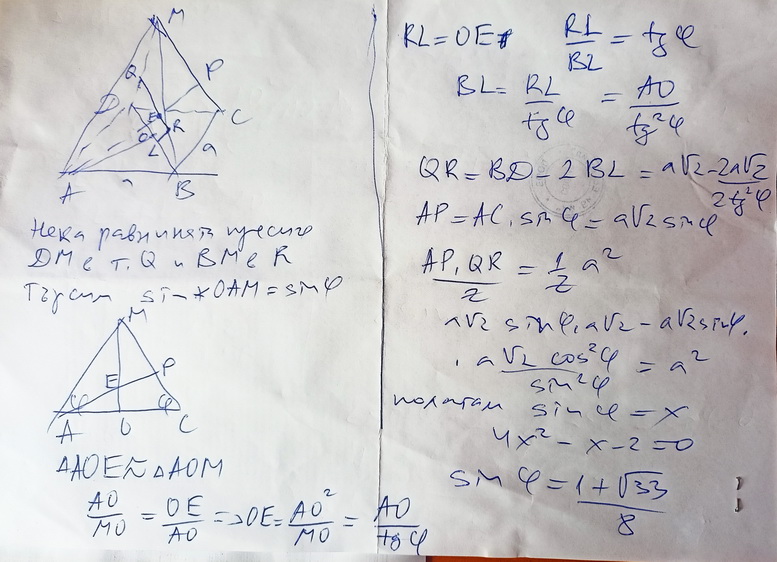 M
Q
P
D
E
C
O
R
L
a
A
a
B
Нека равнината пресича
DM в т. Q и BM в R
Търсим sin∢OAM = sinφ
M
E
P
φ
φ
A
O
C
△AOE ≈ △AOM
AO/MO = OE/AO => OE = AO²/MO = AO/tgφ
RL = OE RL/BL = tgφ
BL = RL/tgφ = AO/tg²φ
QR = BD - 2BL = a√2 - 2a√2/2tg²φ
AP = AC . sinφ = a√2 sinφ
AP . QR/2 = 1/2 a²
a√2 sinφ . a√2 - a√2 sinφ .
. a√2 cos²φ/sin²φ = a²
полагам sinφ = x
4x² - x - 2 = 0
sinφ = 1 + √33/8